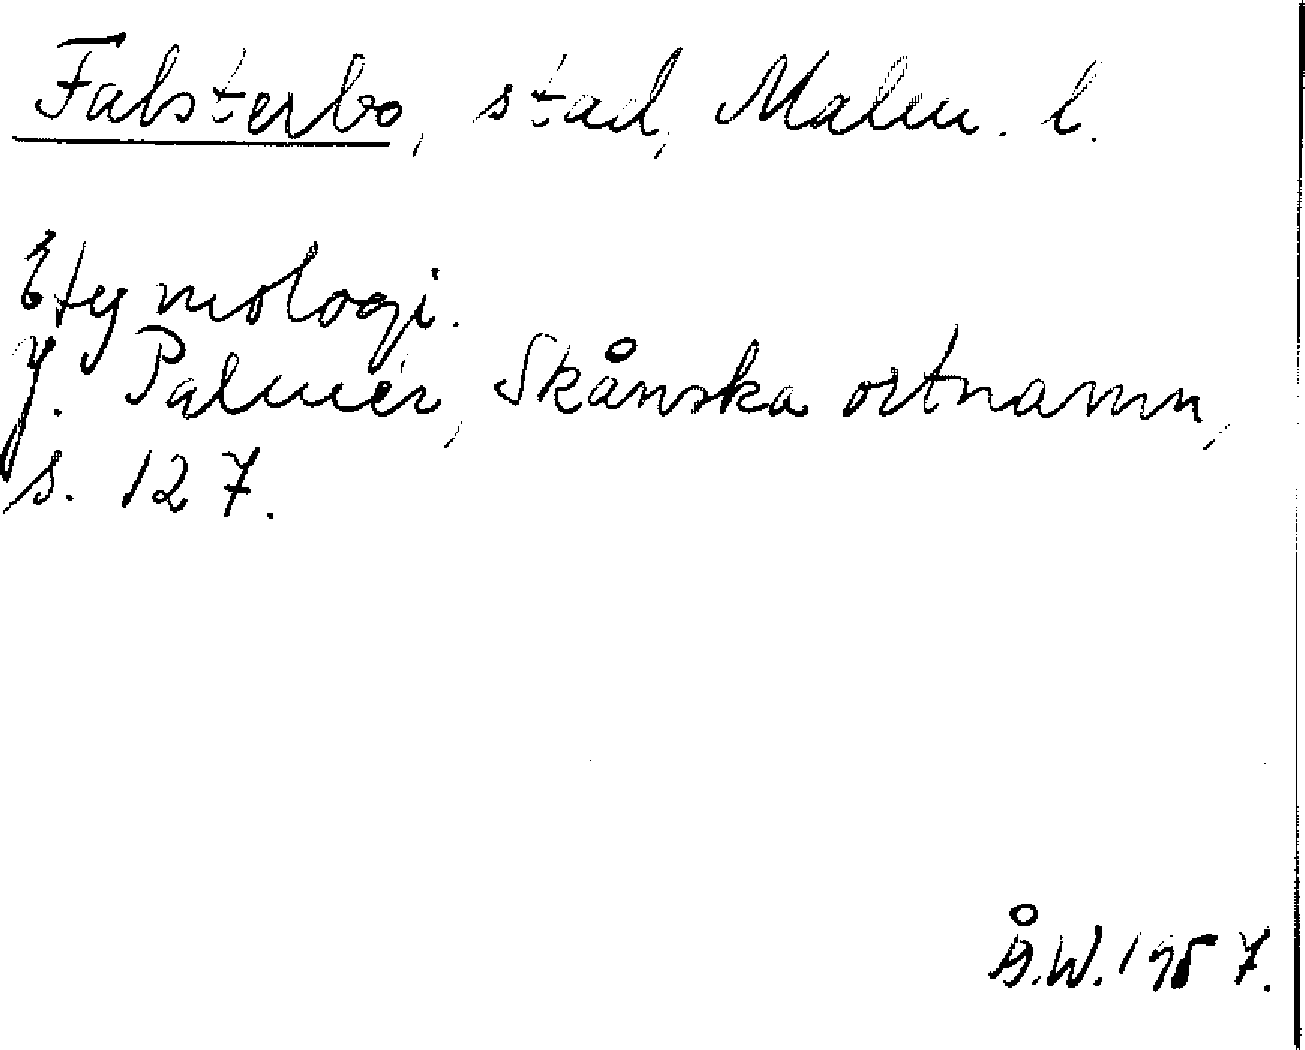 Falsterbo, stad, Malm. l.
Etymologi.
J. Palmér, Skånska ortnamn,
s. 127.
Å.W. 1957.